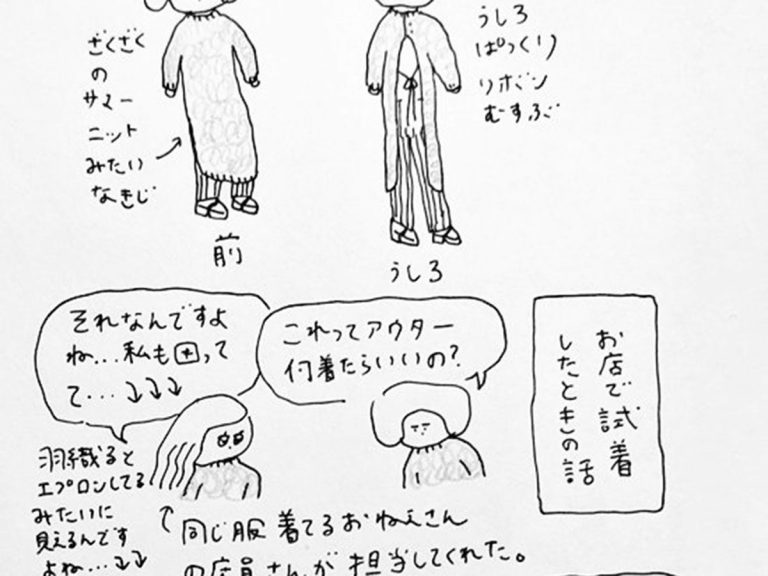 ざくざく
の
サマー
ニット
みたい
なきじ
前
うしろ
ぱっくり
リボン
むすぶ
うしろ
お店で試着
したときの話
これってアウター
何着たらいいの?
それなんですよ
ね...私も困って
て...⤵⤵⤵
羽織ると
エプロンしてる
みたいに
見えるんです
よね...⤵⤵
同じ服着てるおねえさん
の店員さんが担当してくれた。